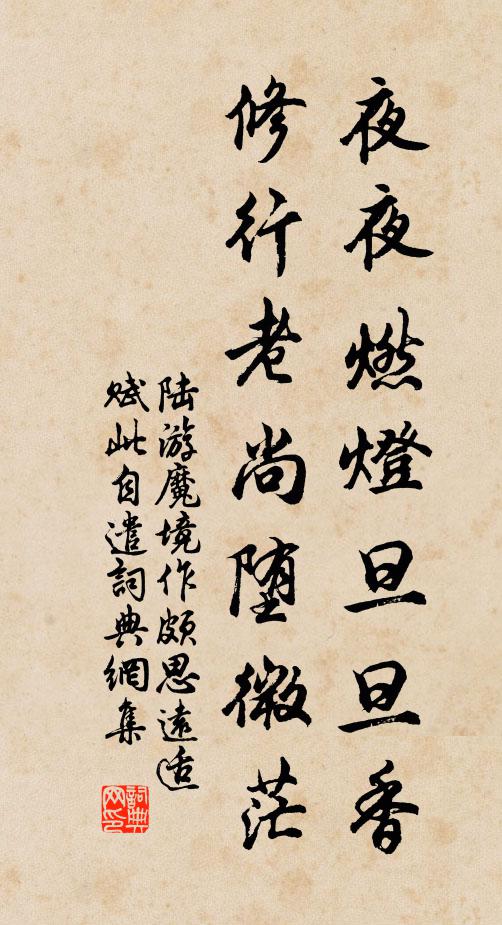 夜夜燃燈旦旦香
修行老尚堕微茫
陆游魔境作頗思遠适
赋此自遣詞典網集
詞典网印